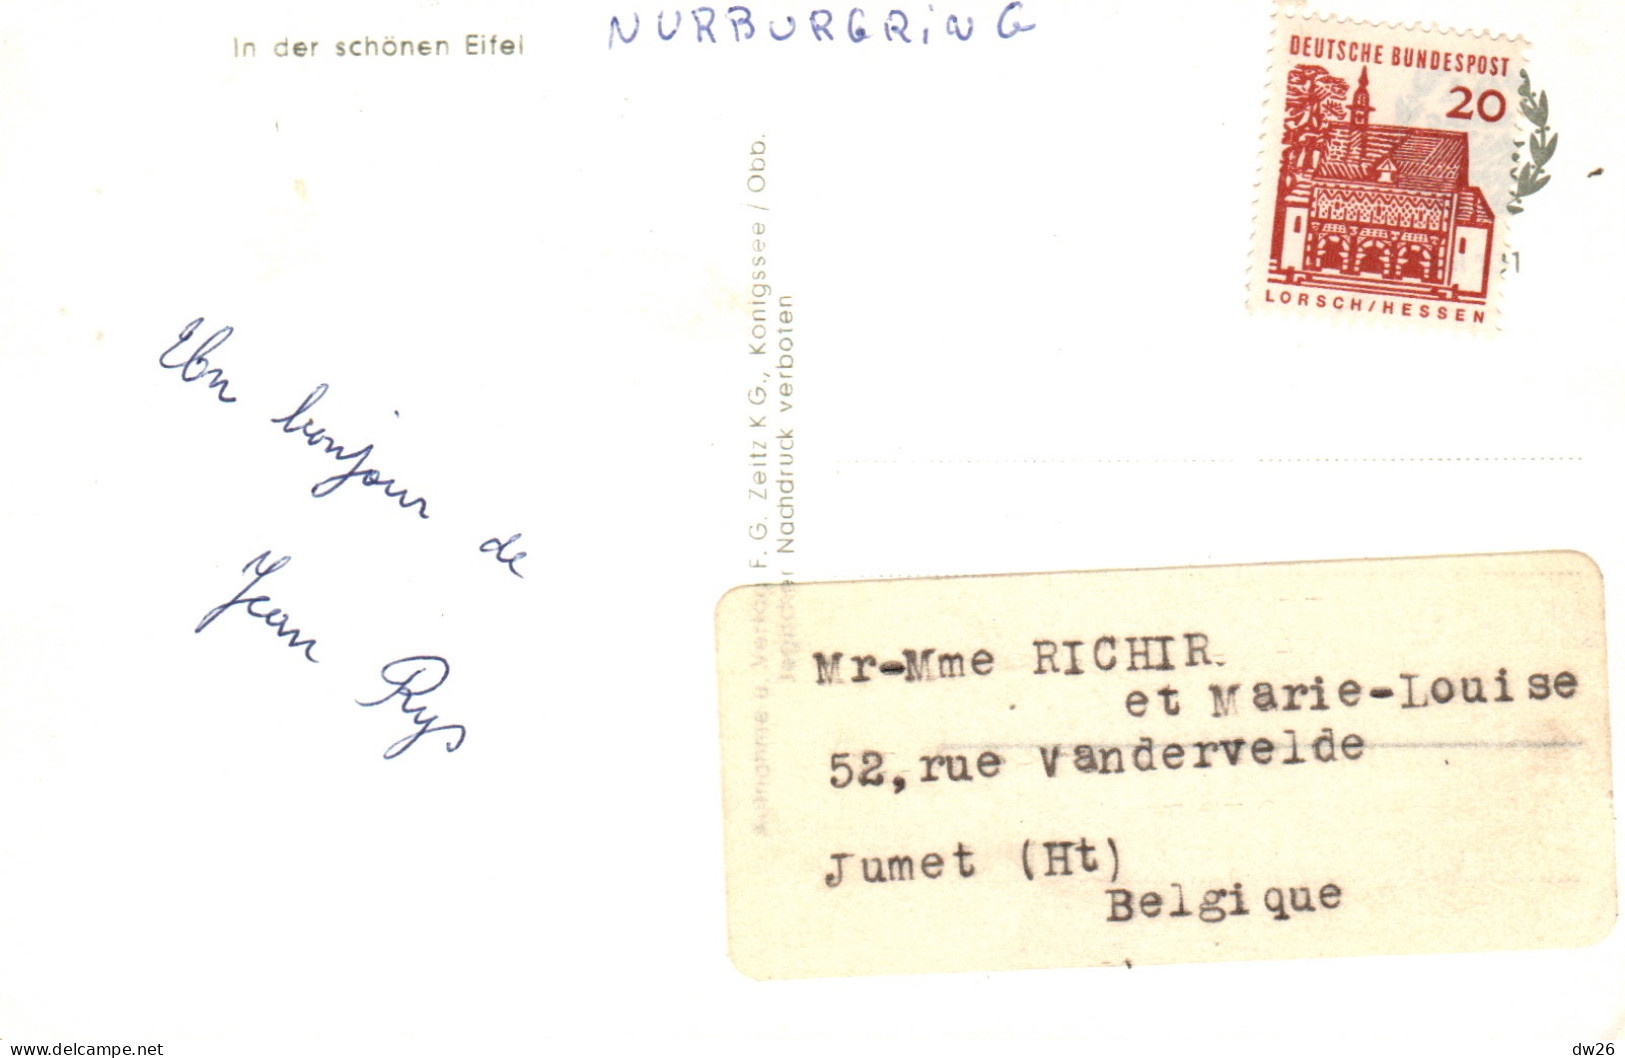 In der schönen Eifel
NURBURGRiNG
DEUTSCHE BUNDESPOST
20
LORSCH/HESSEN
Un bonjour de
Jean Rys
Aufnahme u. Verlag F. G. Zeitz K G., Königssee / Obb.
Jeglicher Nachdruck verboten
Mr-Mme RICHIR
et Marie-Louise
52,rue Vandervelde
Jumet (Ht)
Belgique
dw26